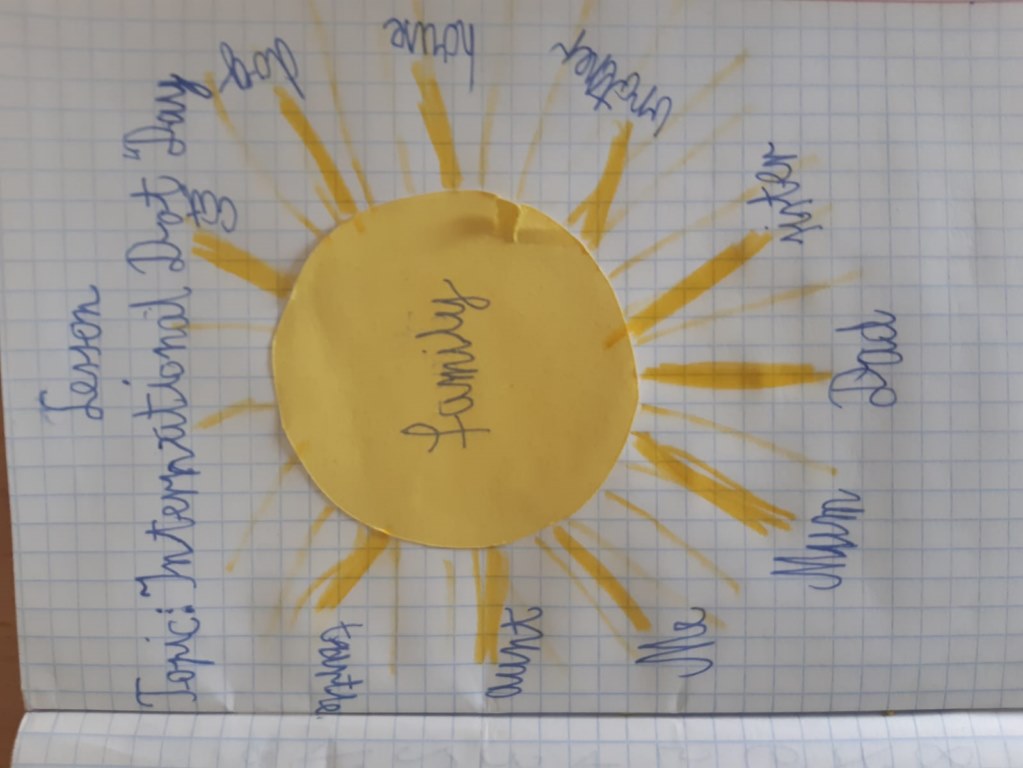 Lesson
Topic: International Dot "Day
dog
house
brother
sister
Dad
Mum
Me
aunt
family